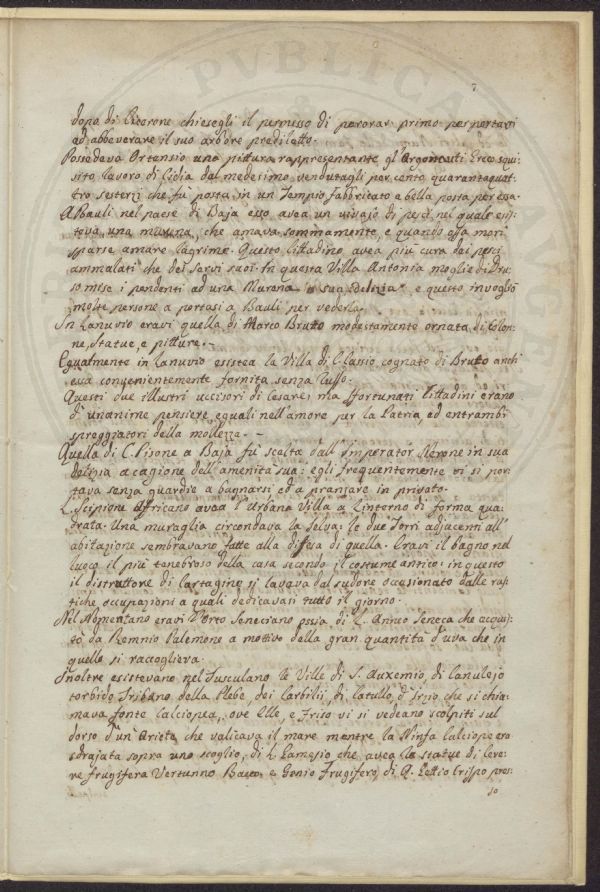 7
dopo di Cicerone chiesegli il permesso di perorar primo per portarsi
ad abbeverare il suo arbore prediletto.
Possedeva Ortensio una pittura rappresentante gl'Argonauti Ercô squi:
sito lavoro di Cidia dal medesimo vendutagli per cento quarantaquat:
tro sesterzi che fù posta in un Tempio fabbricato e bella posta per essa.
A Bauli nel paese di Baja esso avea un vivajo di pesci nel quale esis:
teva una murena, che amava sommamente, e quando essa morì
sparse amare lagrime. Questo Cittadino avea più cura dei pesci
ammalati che dei servi suoi. In questa Villa Antonia moglie di Dru:
so mise i pendenti ad una Murena a sua delizia, e questo invogliò
molte persone a portasi a Bauli per vederla.
In Lanuvio eravi quella di Marco Brutto modestamente ornata di Colon:
ne, Statue, e pitture.
Egualmente in Lanuvio esistea la Villa di Classio cognato di Brutto anch'
essa convenientemente fornita senza lusso.
Questi due illustri uccisori di Cesare, ma sfortunati Cittadini erano
d'unanime pensiere, eguali nell'amore per la Patria, ed entrambi
spreggiatori della mollezza.
Quella di C. Pisone a Baja fu scelta dall'imperator Nerone in sua
delizia a cagione dell'amenità sua: egli frequentemente vi si por:
tava senza guardie a bagnarsi ed a pranzare in privato.
L. Scipione Affricano avea l'Urbana Villa a Linterno di forma qua:
drata. Una muraglia circondava la Selva: le due Torri adjacenti all'
abitazione sembravano fatte alla difesa di quella. Eravi il bagno nel
luogo il più tenebroso della casa secondo il costume antico: in questo
il distruttore di Cartagine si lavava dal sudore occasionato dalle ras:
tiche occupazioni a quali dedicavasi tutto il giorno.
Nel Nomentano eravi l'Orto Seneciano ossia di L. Anneo Seneca che acqui:
stò da Remnio Palemone a mottivo della gran quantità d'uva che in
quello si raccoglieva.
Inoltre esistevano nel Tusculano le Ville di S. Auxemio, di Canulejo
torbido Tribuno della Plebe, dei Carbilii, di Catullo, d'Irzio che si chia:
mava fonte Calciopea, ove Elle, e Friso vi si vedeano scolpiti sul
dorso d'un'Ariete che valicava il mare mentre la Ninfa Calciope era
sdrajata sopra uno scoglio, di L. Lamesio che avea le statue di Cere:
re frugifera Vertunno Bacco e Genio Frugifero, di Q. Lettio Crispo pres:
so